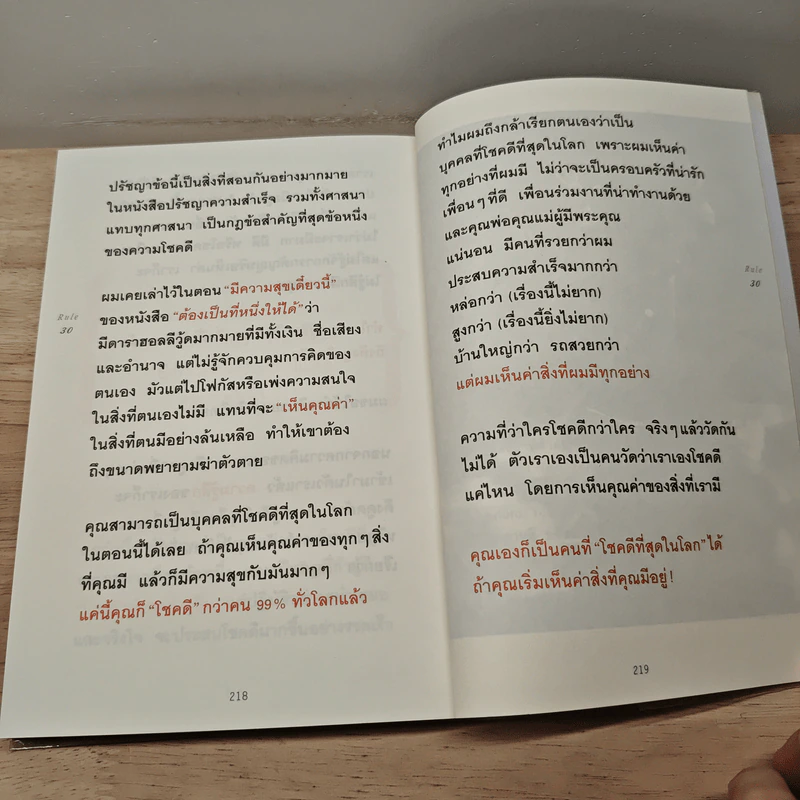 ปรัชญาข้อนี้เป็นสิ่งที่สอนกันอย่างมากมาย
ในหนังสือปรัชญาความสำเร็จ รวมทั้งศาสนา
แทบทุกศาสนา เป็นกฎข้อสำคัญที่สุดข้อหนึ่ง
ของความโชคดี
Rule
30
ผมเคยเล่าไว้ในตอน "มีความสุขเดี๋ยวนี้"
ของหนังสือ "ต้องเป็นที่หนึ่งให้ได้" ว่า
มีดาราฮอลลีวู้ดมากมายที่มีทั้งเงิน ชื่อเสียง
และอำนาจ แต่ไม่รู้จักควบคุมการคิดของ
ตนเอง มัวแต่ไปโฟกัสหรือเพ่งความสนใจ
ในสิ่งที่ตนเองไม่มี แทนที่จะ "เห็นคุณค่า"
ในสิ่งที่ตนมีอย่างล้นเหลือ ทำให้เขาต้อง
ถึงขนาดพยายามฆ่าตัวตาย
คุณสามารถเป็นบุคคลที่โชคดีที่สุดในโลก
ในตอนนี้ได้เลย ถ้าคุณเห็นคุณค่าของทุกๆ สิ่ง
ที่คุณมี แล้วก็มีความสุขกับมันมากๆ
แค่นี้คุณก็ "โชคดี" กว่าคน 99% ทั่วโลกแล้ว
218
ทำไมผมถึงกล้าเรียกตนเองว่าเป็น
บุคคลที่โชคดีที่สุดในโลก เพราะผมเห็นค่า
ทุกอย่างที่ผมมี ไม่ว่าจะเป็นครอบครัวที่น่ารัก
เพื่อนๆ ที่ดี เพื่อนร่วมงานที่น่าทำงานด้วย
และคุณพ่อคุณแม่ผู้มีพระคุณ
แน่นอน มีคนที่รวยกว่าผม
ประสบความสำเร็จมากกว่า
หล่อกว่า (เรื่องนี้ไม่ยาก)
สูงกว่า (เรื่องนี้ยิ่งไม่ยาก)
บ้านใหญ่กว่า รถสวยกว่า
แต่ผมเห็นค่าสิ่งที่ผมมีทุกอย่าง
Rule
30
ความที่ว่าใครโชคดีกว่าใคร จริงๆ แล้ววัดกัน
ไม่ได้ ตัวเราเองเป็นคนวัดว่าเราเองโชคดี
แค่ไหน โดยการเห็นคุณค่าของสิ่งที่เรามี
คุณเองก็เป็นคนที่ "โชคดีที่สุดในโลก" ได้
ถ้าคุณเริ่มเห็นค่าสิ่งที่คุณมีอยู่!
219